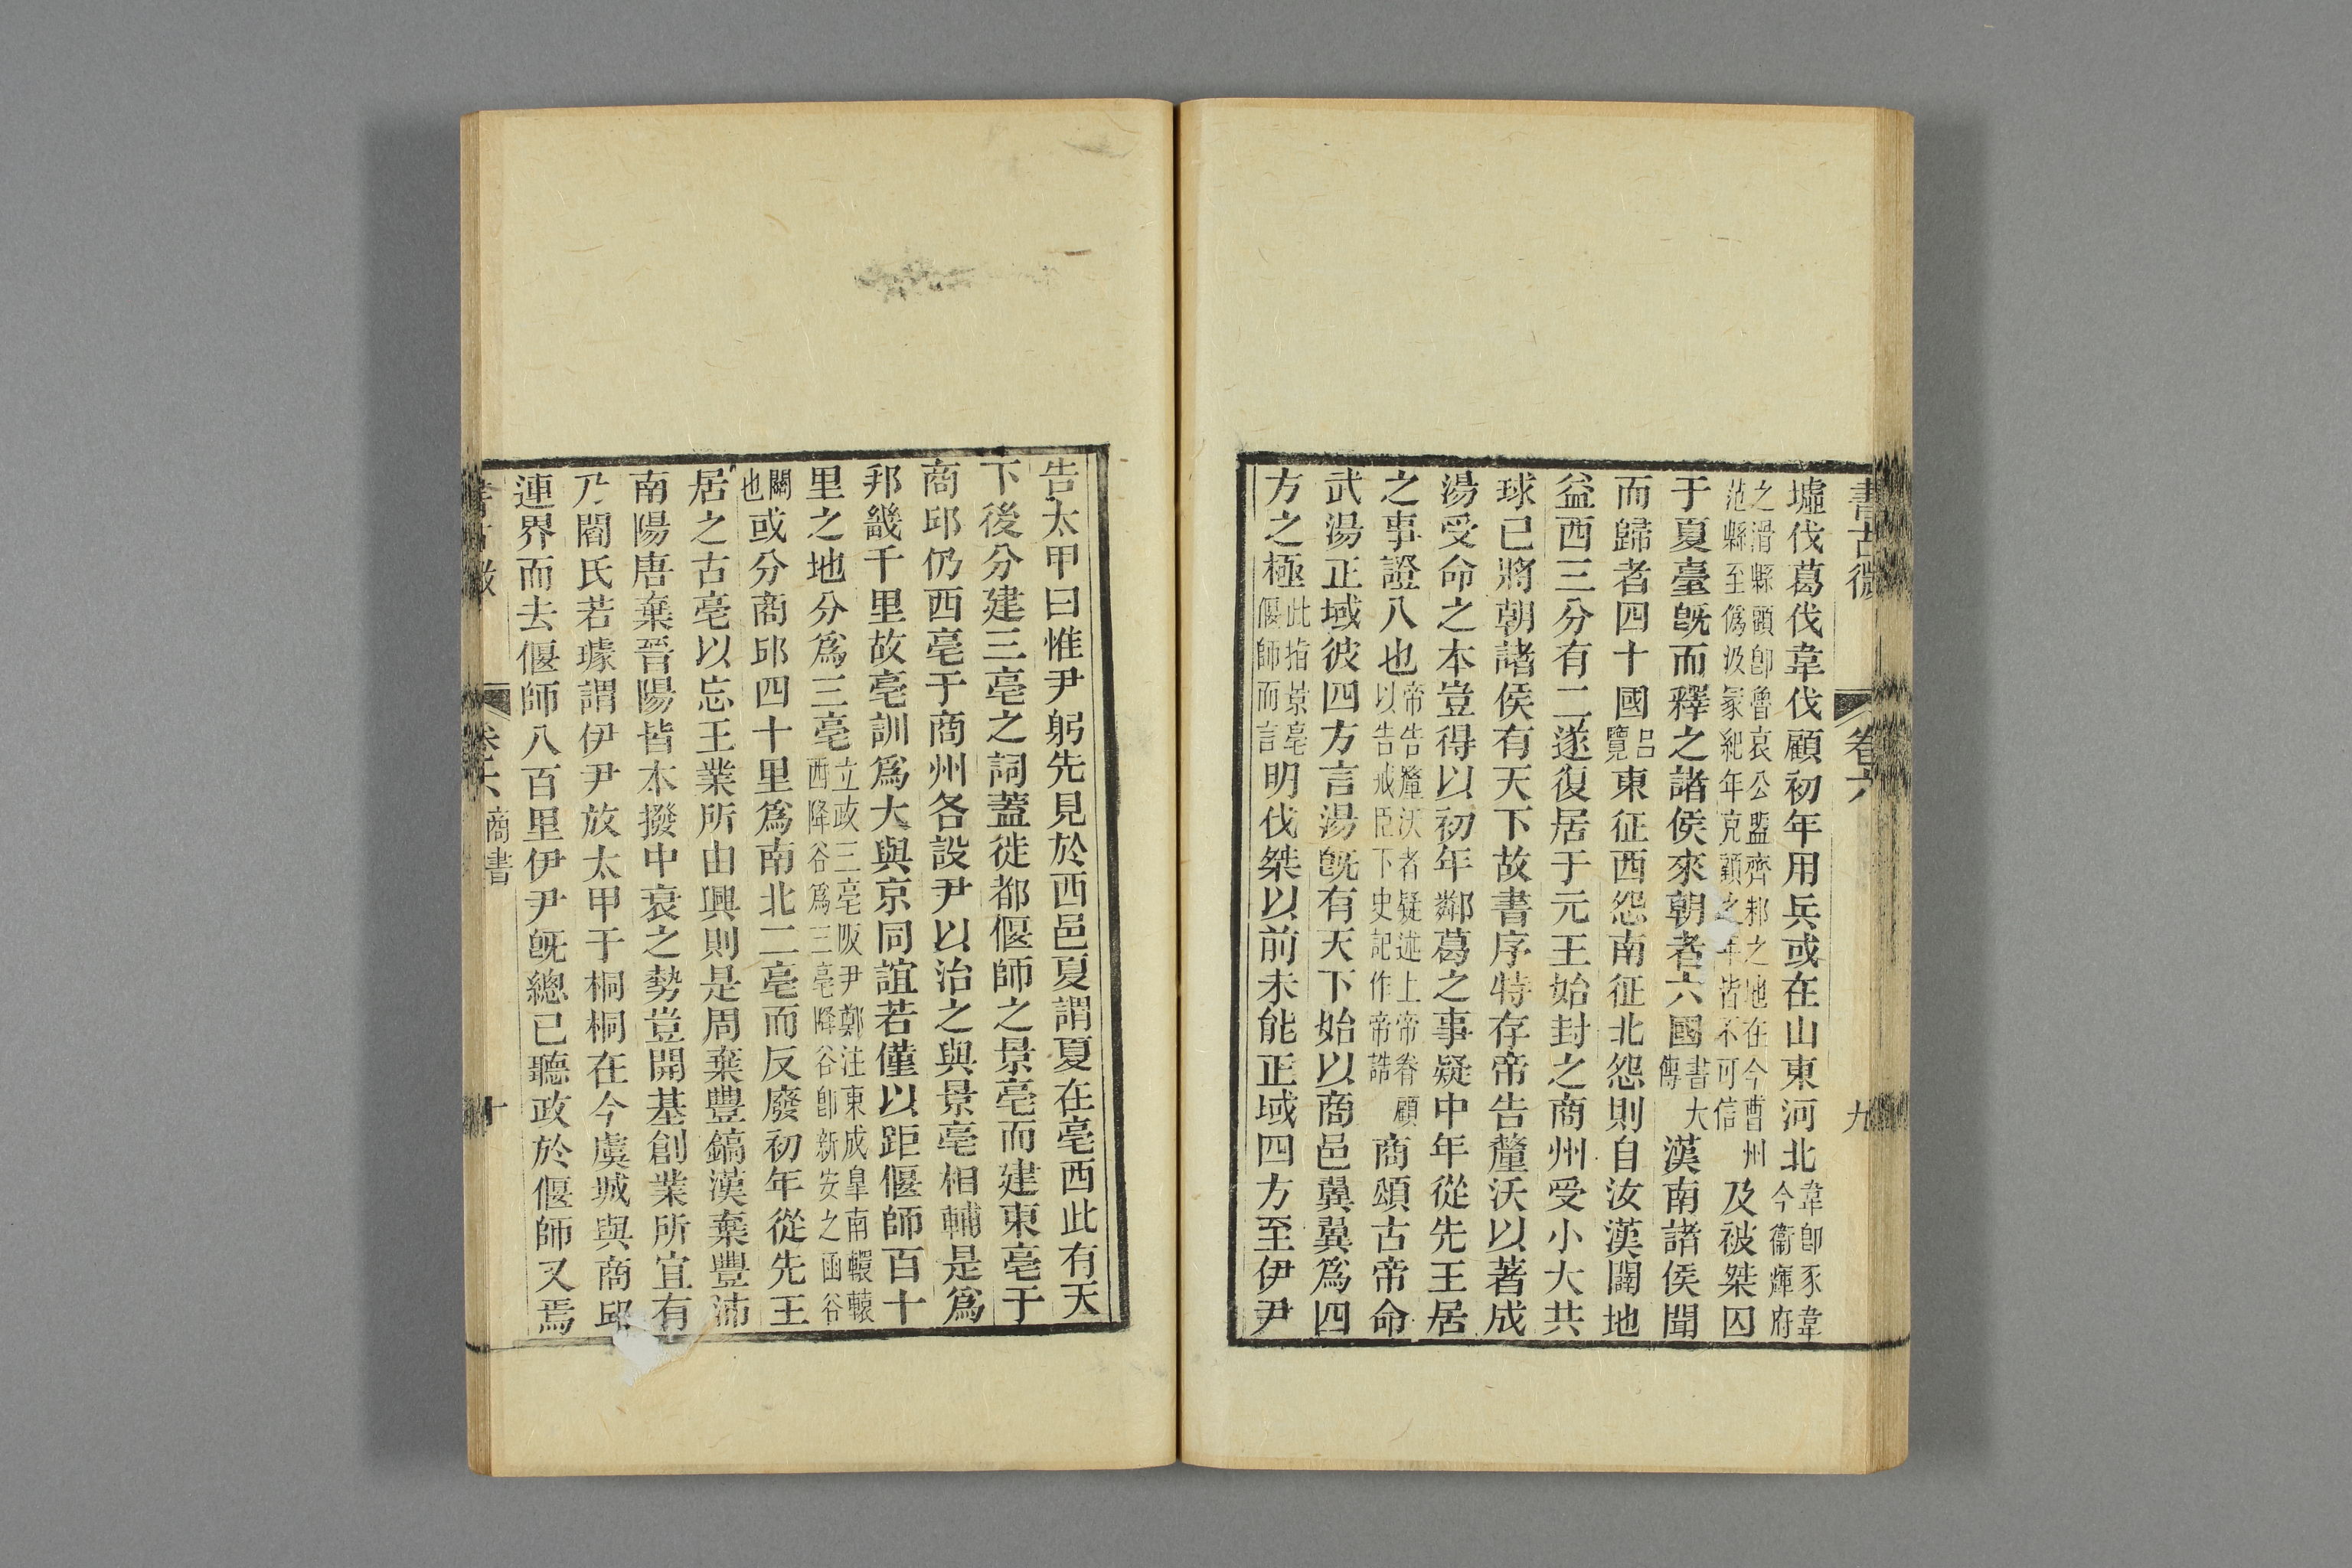 書古微
卷六
九
墟伐葛伐韋伐顧初年用兵或在山東河北韋卽豕韋今衞輝府
之滑縣顧卽魯哀公盟齊邾之地在今曹州范縣至僞汲冢紀年克顧之年皆不可信及被桀囚
于夏臺旣而釋之諸侯來朝者六國書大傳漢南諸侯聞
而歸者四十國呂覽東征西怨南征北怨則自汝漢闢地
益西三分有二遂復居于元王始封之商州受小大共
球已將朝諸侯有天下故書序特存帝告釐沃以著成
湯受命之本豈得以初年鄰葛之事疑中年從先王居
之事證八也帝告釐沃者疑述上帝眷顧以告戒臣下史記作帝誥商頌古帝命
武湯正域彼四方言湯旣有天下始以商邑翼翼爲四
方之極此指景亳偃師而言明伐桀以前未能正域四方至伊尹
告太甲曰惟尹躬先見於西邑夏謂夏在亳西此有天
下後分建三亳之詞蓋徙都偃師之景亳而建東亳于
商邱仍西亳于商州各設尹以治之與景亳相輔是爲
邦畿千里故亳訓爲大與京同誼若僅以距偃師百十
里之地分爲三亳立政三亳阪尹鄭注東成皐南轘轅西降谷爲三亳降谷卽新安之函谷
關也或分商邱四十里爲南北二亳而反廢初年從先王
居之古亳以忘王業所由興則是周棄豐鎬漢棄豐沛
南陽唐棄晉陽皆本撥中衰之勢豈開基創業所宜有
乃閻氏若璩謂伊尹放太甲于桐桐在今虞城與商邱
連界而去偃師八百里伊尹旣總已聽政於偃師又焉
書古微
卷六 商書
十